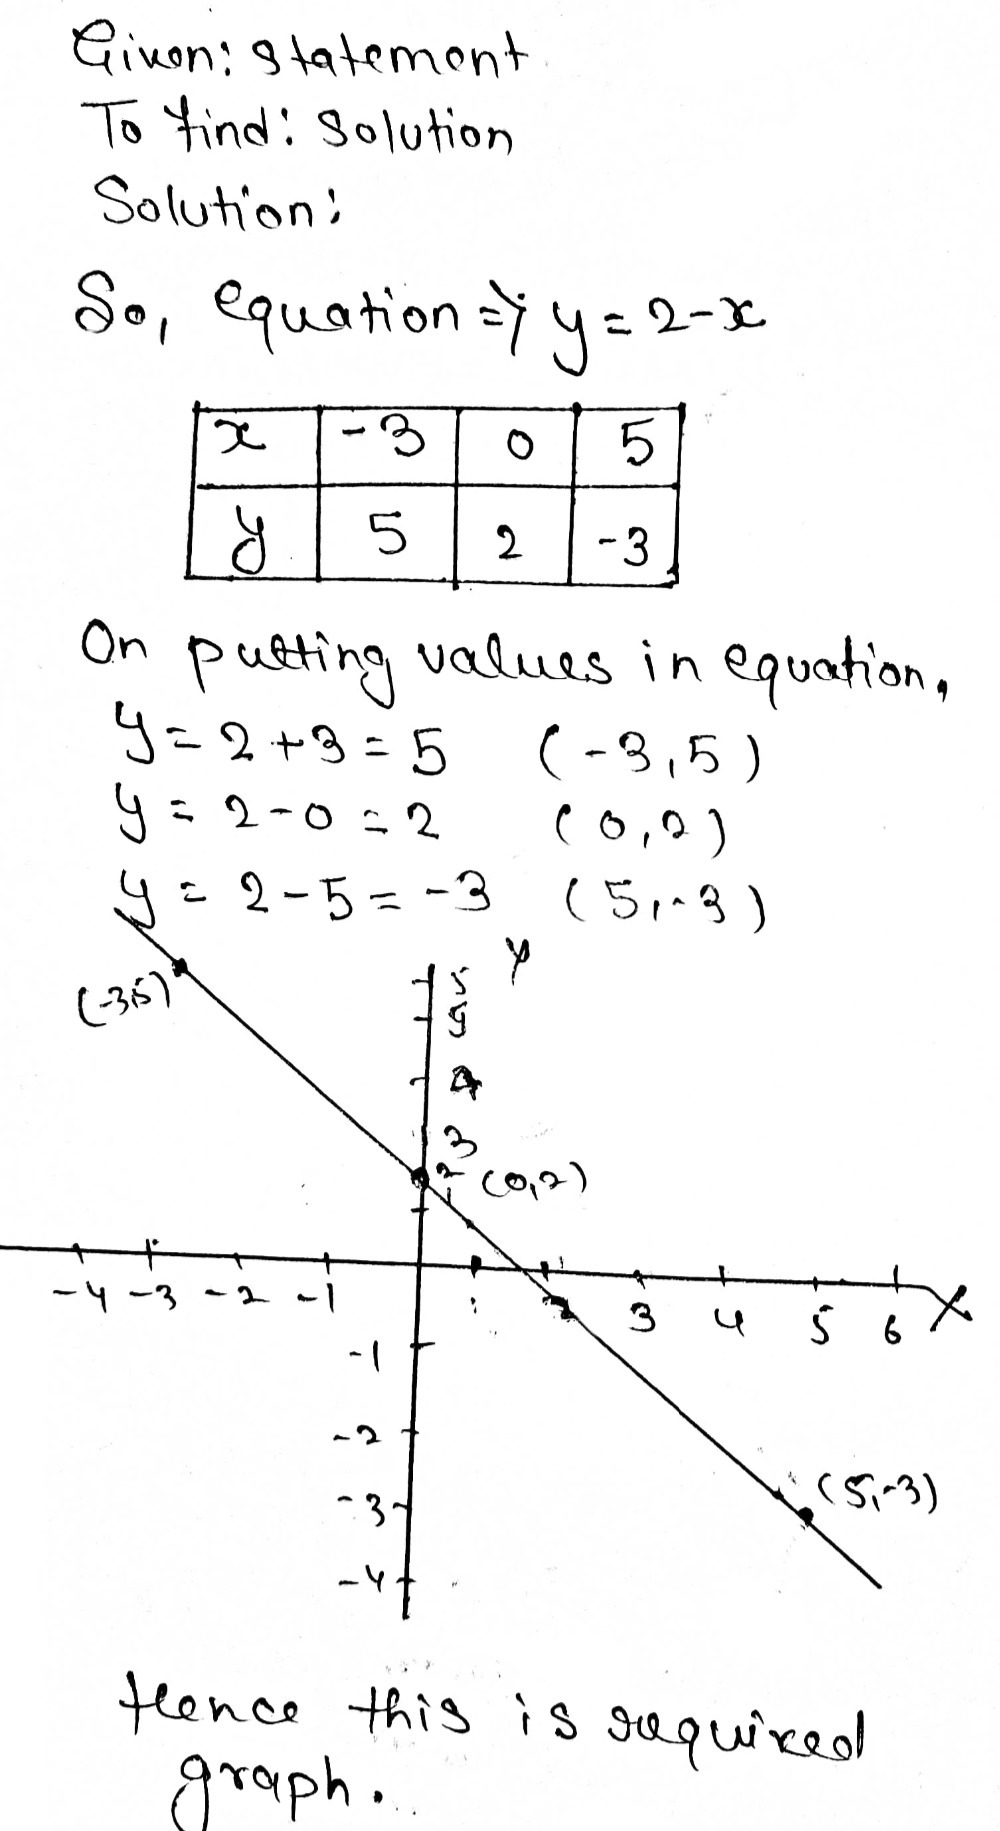 Given: statement
To find: Solution
Solution:
So, equation => y = 2-x
x -3 0 5
y 5 2 -3
On putting values in equation,
y = 2+3 = 5 (-3,5)
y = 2-0 = 2 (0,2)
y = 2-5 = -3 (5,-3)
Y
(-3,5)
5
4
3
2 (0,2)
1
-4 -3 -2 -1 2 3 4 5 6 X
-1
-2
-3 (5,-3)
-4
Hence this is required
graph.